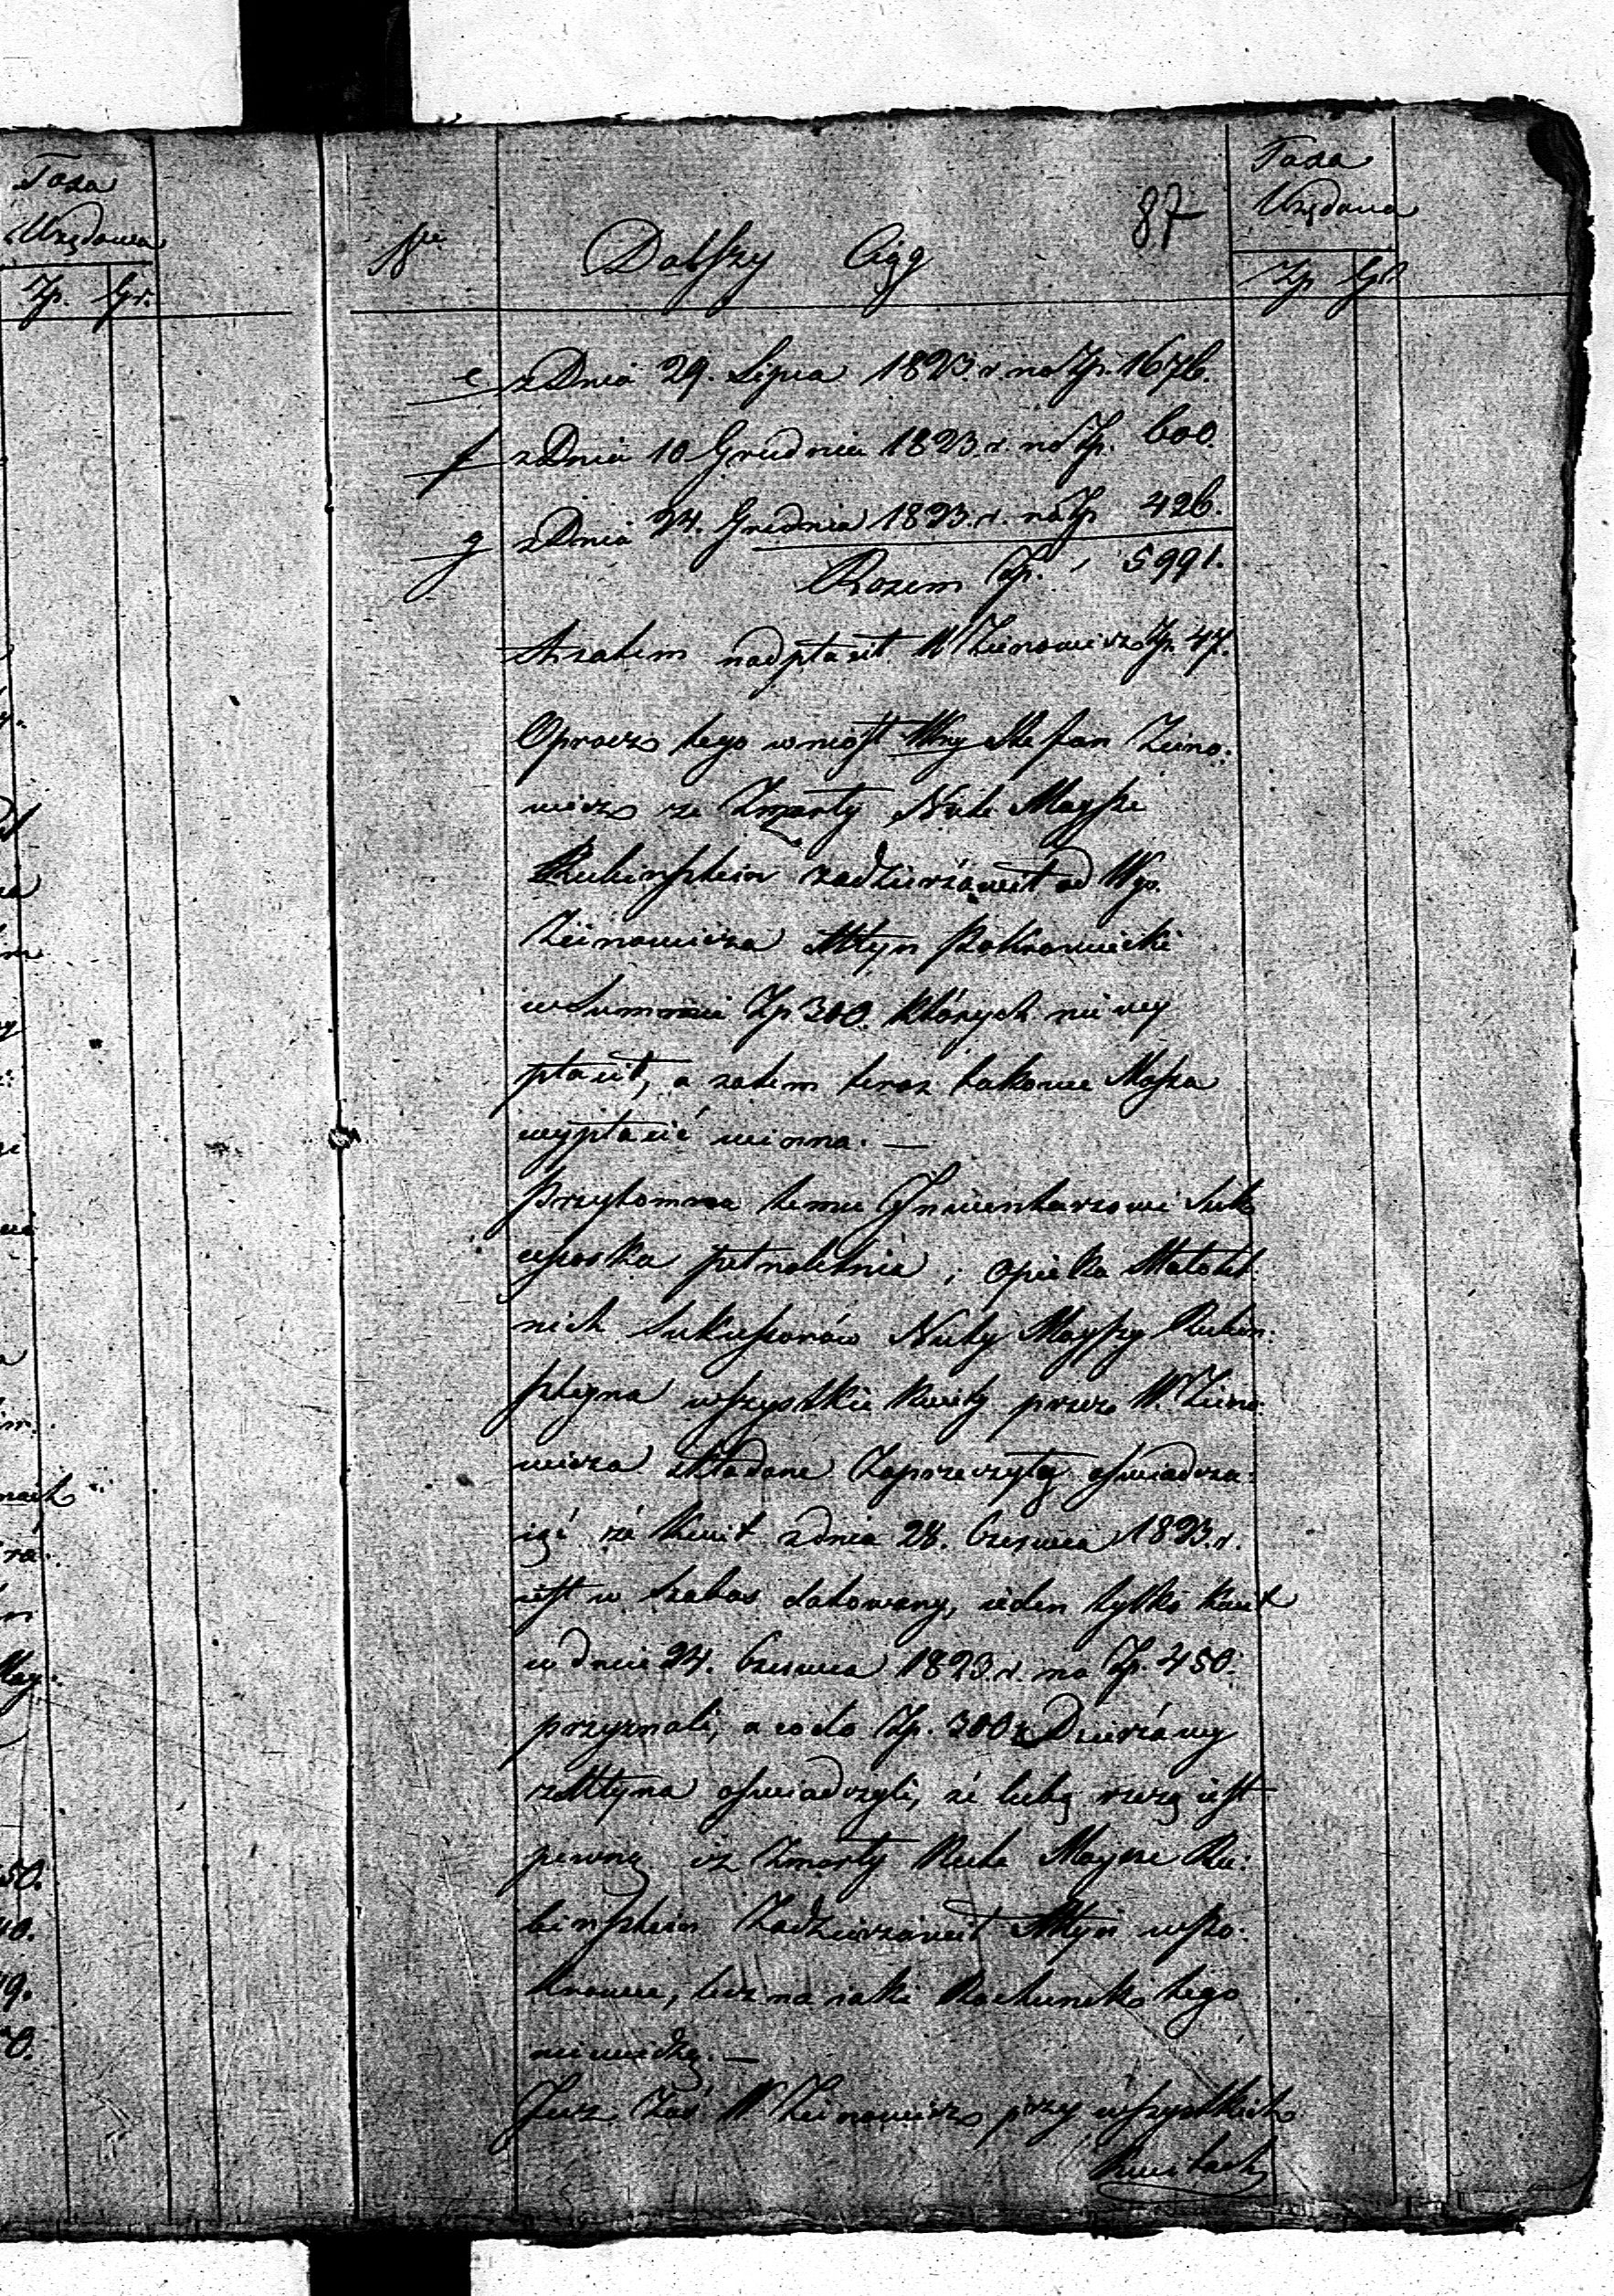 Taxa
Urzędowa
Zp. Gr.
50.
Nro Dalszy Ciąg 87
Taxa
Urzędowa
Zp Gr
e z Dnia 29. Lipca 1823. r. na Zp. 1676.
f z Dnia 10 Grudnia 1823. r. na Zp. 600.
g z Dnia 24. Grudnia 1823. r. na Zp 426.
Razem Zp. 5991.
A zatem nadpłacił W Zienowicz Zp. 47.
Oprocz tego wniosł Wny Stefan Zieno:
wicz ze Zmarły Nuta Maysze
Rubinsztein zadzierżawił od Wgo.
Zienowicza Młyn
w Summie Zp 300. których nie wy
płacił, a zatem teraz takowe Massa
wypłacić winna. —
Przytomna temu Inwentarzowi Suk
cessorka pełnoletnia, i Opieka Małolet:
nich Sukcessorów Nuty Mayszy Rubin:
szteyna wszystkie kwity przez W. Zieno:
wicza składane Zaprzeczyły oświadcza:
iąc że kwit z dnia 28. Czerwca 1823. r.
iest w Szabas datowany, ieden tylko kwit
w dniu 24. Czerwca 1823. r. na Zp. 450.
przyznali, a co do Zp. 300 z Dzierżawy
z Młyna oświadczyli, że lubo rzeczą iest
pewną iż Zmarły Nuta Maysze Ru:
binsztein Zadzierżawił Młyn
lecz na iaki Rachunek tego
nie wiedzą. —
Zaś W Zienowicz przy wszystkich
Kwitach